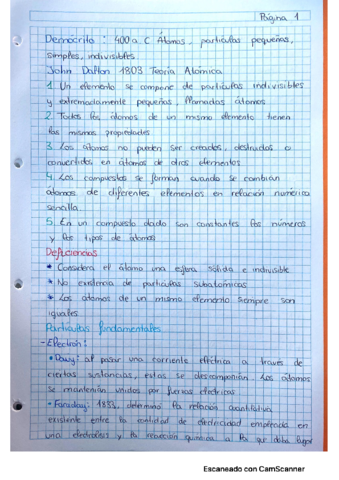 Página 1
Demócrito: 400 a.C Átomos, partículas pequeñas,
simples, indivisibles
John Dalton 1803 Teoría Atómica
1. Un elemento se compone de partículas indivisibles
y extremadamente pequeñas, llamadas átomos
2. Todos los átomos de un mismo elemento tienen
las mismas propiedades
3. Los átomos no pueden ser creados, destruidos o
convertidos en átomos de otros elementos
4. Los compuestos se forman cuando se combinan
átomos de diferentes elementos en relación numérica
sencilla
5. En un compuesto dado son constantes los números
y los tipos de átomos
Deficiencias
* Considera el átomo una esfera sólida e indivisible
* No existencia de partículas subatómicas
* Los átomos de un mismo elemento siempre son
iguales
Partículas fundamentales
- Electrón:
• Davy: al pasar una corriente eléctrica a través de
ciertas sustancias, estas se descomponían. Los átomos
se mantenían unidos por fuerzas eléctricas
• Faraday: 1833, determinó la relación cuantitativa
existente entre la cantidad de electricidad empleada en
una electrólisis y la reacción química a la que daba lugar
Escaneado con CamScanner